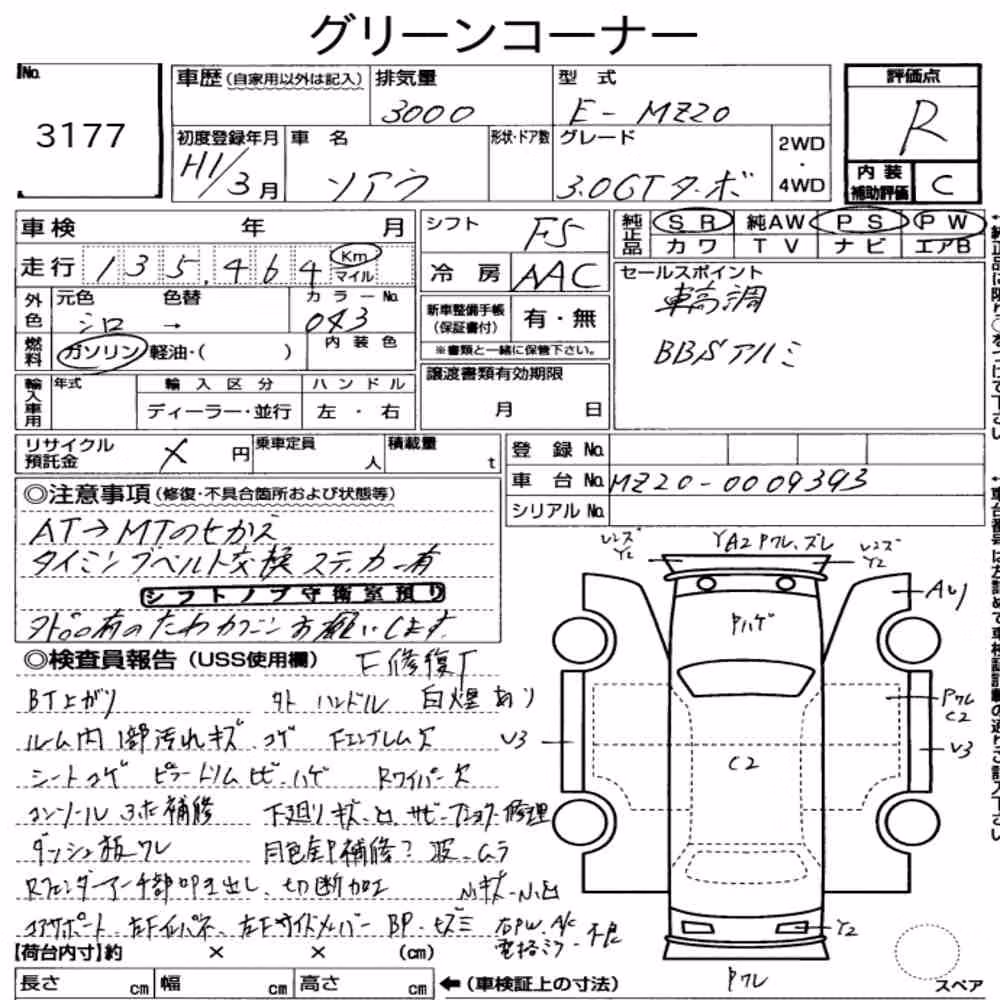 グリーンコーナー
No. 3177
車歴 (自家用以外は記入) 排気量 3000 型式 E-MZ20
初度登録年月 H1/3月 車名 ソアラ 形状・ドア数 グレード 3.0GTターボ 2WD・4WD
評価点 R
内装補助評価 C
車検 年 月
走行 135,464 Km マイル
外色 元色 シロ 色替 → カラーNo. 043
燃料 ガソリン 軽油・( ) 内装色
輸入車用 年式 輸入区分 ディーラー・並行 ハンドル 左・右
シフト F5
冷房 AAC
新車整備手帳(保証書付) 有・無
※書類と一緒に保管下さい。
譲渡書類有効期限 月 日
純正品 SR 純AW PS PW
カワ TV ナビ エアB
セールスポイント
車高調
BBSアルミ
リサイクル預託金 × 円 乗車定員 人 積載量 t
登録No.
車台No. MZ20-0009393
シリアルNo.
◎注意事項 (修復・不具合箇所および状態等)
AT→MTのせかえ
タイミングベルト交換 ステッカー有
シフトノブ守衛室預り
外品有のためカクニンお願いします
◎検査員報告 (USS使用欄) F修復
BT上がり 外ハンドル 白煙あり
ルーム内1部汚れキズ.コゲ Fエンブレム欠
シートコゲ ピラートリムヒビ.ハゲ Rワイパー欠
コンソール 補修 下廻りキズ サビ 修理
ダッシュ板ワレ 同色全P補修? 波.ムラ
Rフェンダーアーチ部叩き出し、切断加工 小キズ-小凹
コアサポート 左Fインパネ、左Fサイドメンバー BP.ヒズミ 右PW.A/C
電格ミラー不良
【荷台内寸】約 × × (cm)
長さ cm 幅 cm 高さ cm ←(車検証上の寸法)
レンズ Y2
YA2 Pワレ、ズレ
レンズ Y2
Pハゲ
A U1
Pワレ C2
U3
C2
U3
Y2
Pワレ
スペア